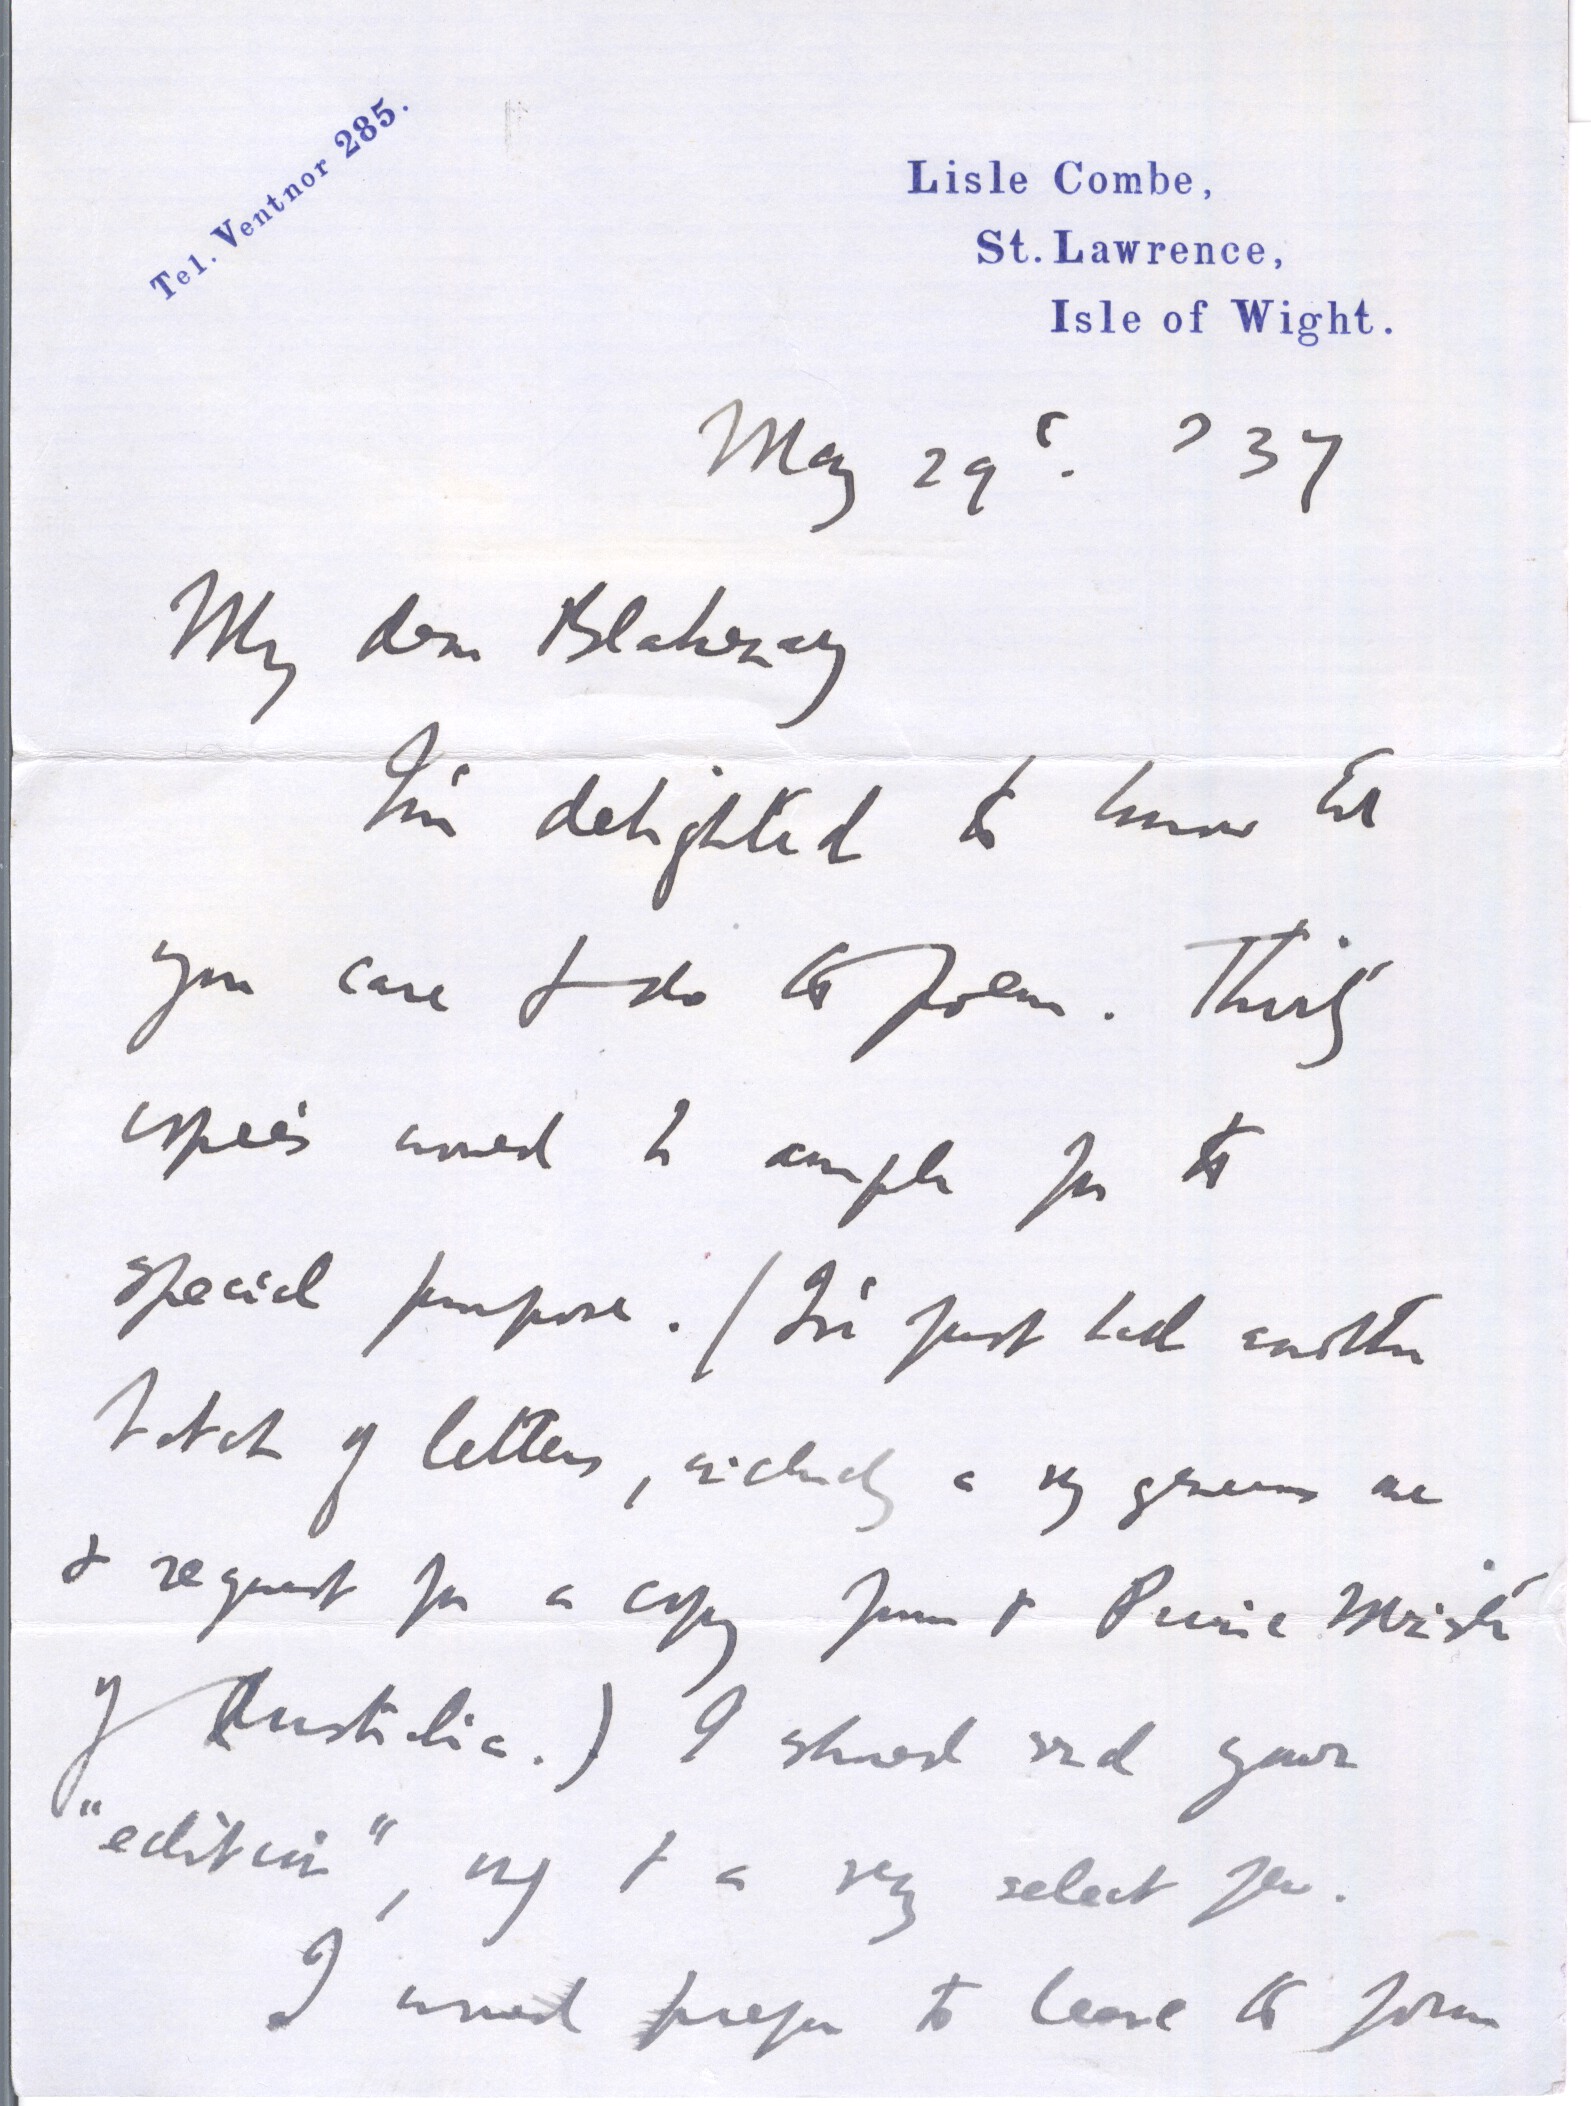 Tel. Ventnor 285.
Lisle Combe,
St. Lawrence,
Isle of Wight.
May 29th. '37
My dear Blakeney
I'm delighted to know that
you care to do the poem. Thirty
copies would be ample for the
special purpose. (I've just had another
batch of letters, including a very generous one
& request for a copy from the Prime Minister
of Australia.) I should send your
"edition", only to a very select few.
I would prefer to leave the form